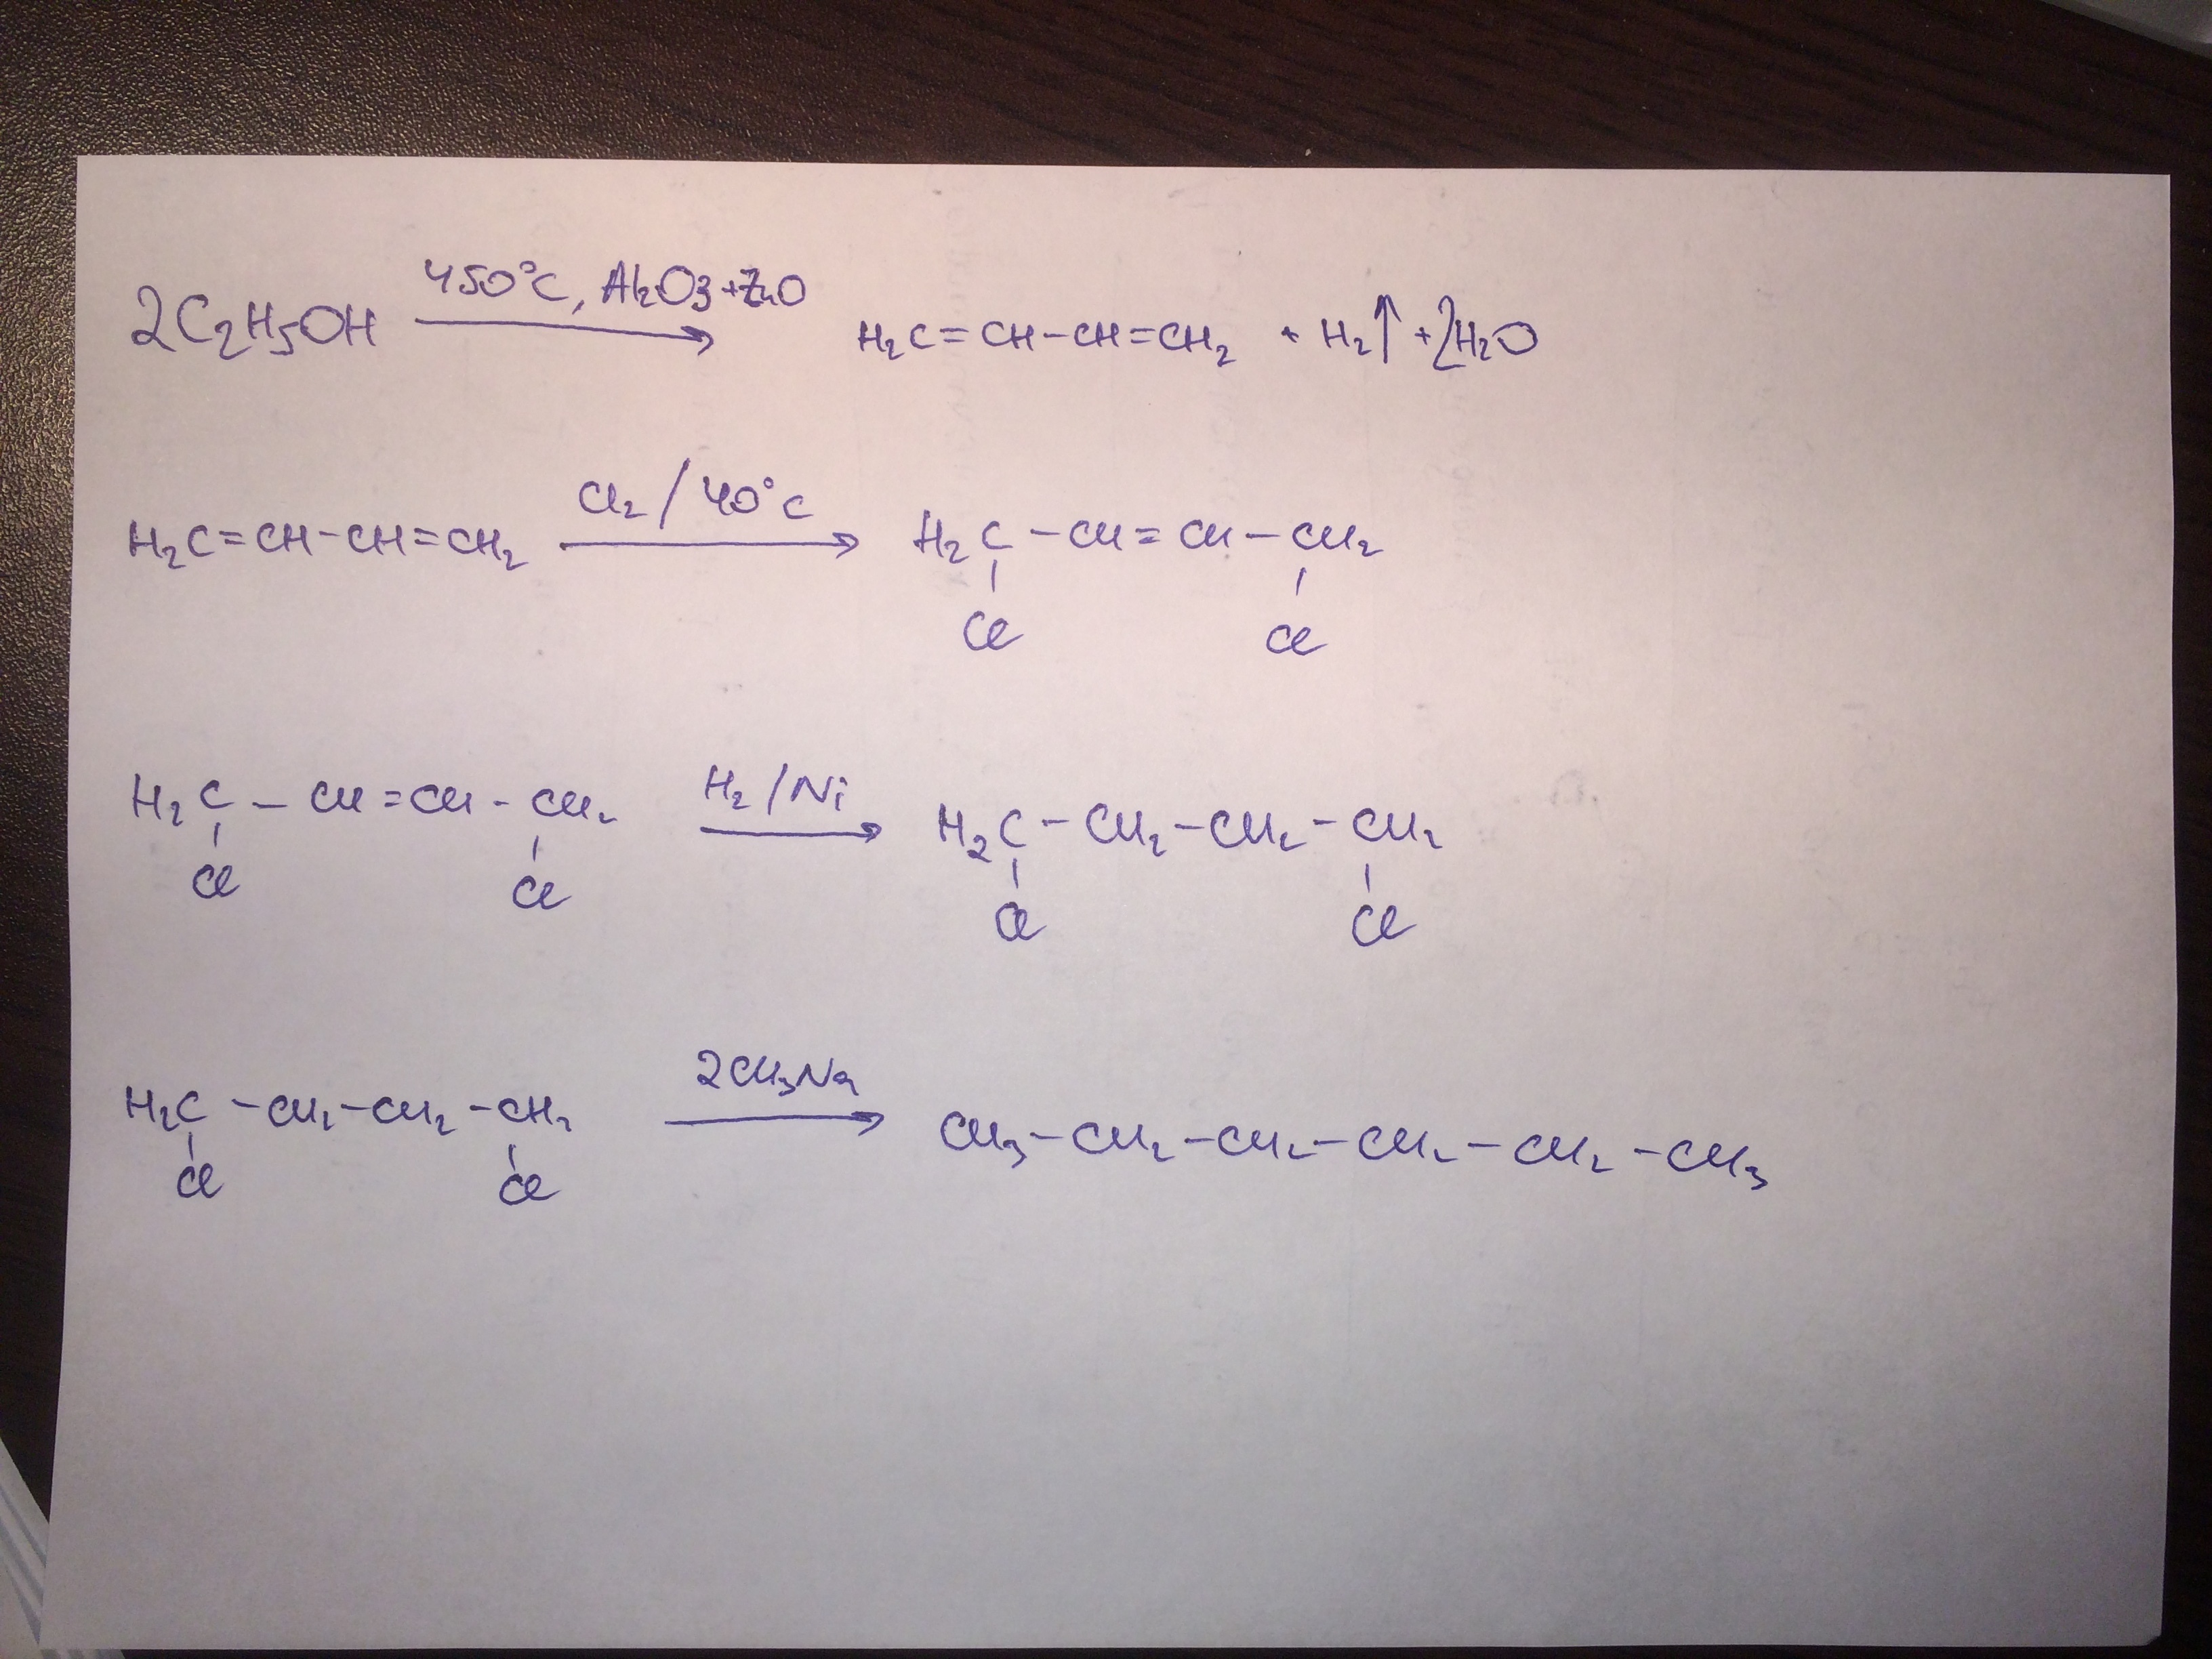 2C₂H₅OH 450°C, Al₂O₃+ZnO → H₂C=CH-CH=CH₂ + H₂↑ + 2H₂O
H₂C=CH-CH=CH₂ Cl₂/40°C → H₂C-CH=CH-CH₂
Cl Cl
H₂C-CH=CH-CH₂ H₂/Ni → H₂C-CH₂-CH₂-CH₂
Cl Cl Cl Cl
H₂C-CH₂-CH₂-CH₂ 2CH₃Na → CH₃-CH₂-CH₂-CH₂-CH₂-CH₃
Cl Cl